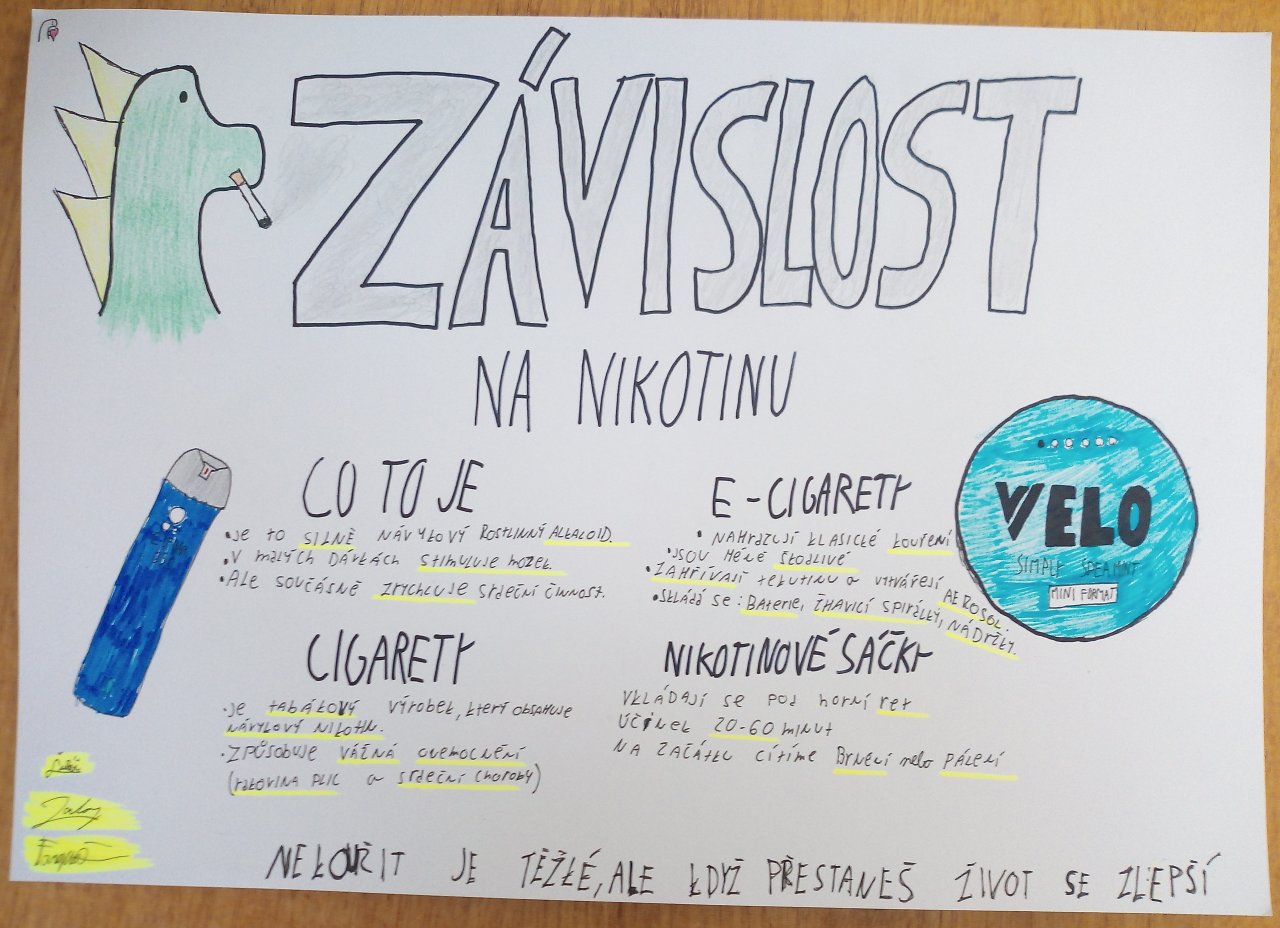 ZÁVISLOST
NA NIKOTINU
CO TO JE
• JE TO SILNĚ NÁVYKOVÝ ROSTLINNÝ ALKALOID.
• V MALÝCH DÁVKÁCH STIMULUJE MOZEK.
• ALE SOUČÁSNĚ ZRYCHLUJE SRDEČNÍ ČINNOST.
CIGARETY
• JE TABÁKOVÝ VÝROBEK, KTERÝ OBSAHUJE
NÁVYKOVÝ NIKOTIN.
• ZPŮSOBUJE VÁŽNÁ ONEMOCNĚNÍ
(RAKOVINA PLIC A SRDEČNÍ CHOROBY)
E-CIGARETY
• NAHRAZUJÍ KLASICKÉ KOUŘENÍ
• JSOU MÉNĚ ŠKODLIVÉ
• ZAHŘÍVAJÍ TEKUTINU A VYTVÁŘEJÍ AEROSOL.
• SKLÁDÁ SE: BATERIE, ŽHAVICÍ SPIRÁLKY, NÁDRŽKY.
VELO
SIMPLY SPEARMNT
MINI FORMAT
NIKOTINOVÉ SÁČKY
VKLÁDAJÍ SE POD HORNÍ RET
ÚČINEK 20-60 MINUT
NA ZAČÁTKU CÍTÍME BRNĚNÍ NEBO PÁLENÍ
NEKOUŘIT JE TĚŽKÉ, ALE KDYŽ PŘESTANEŠ ŽIVOT SE ZLEPŠÍ